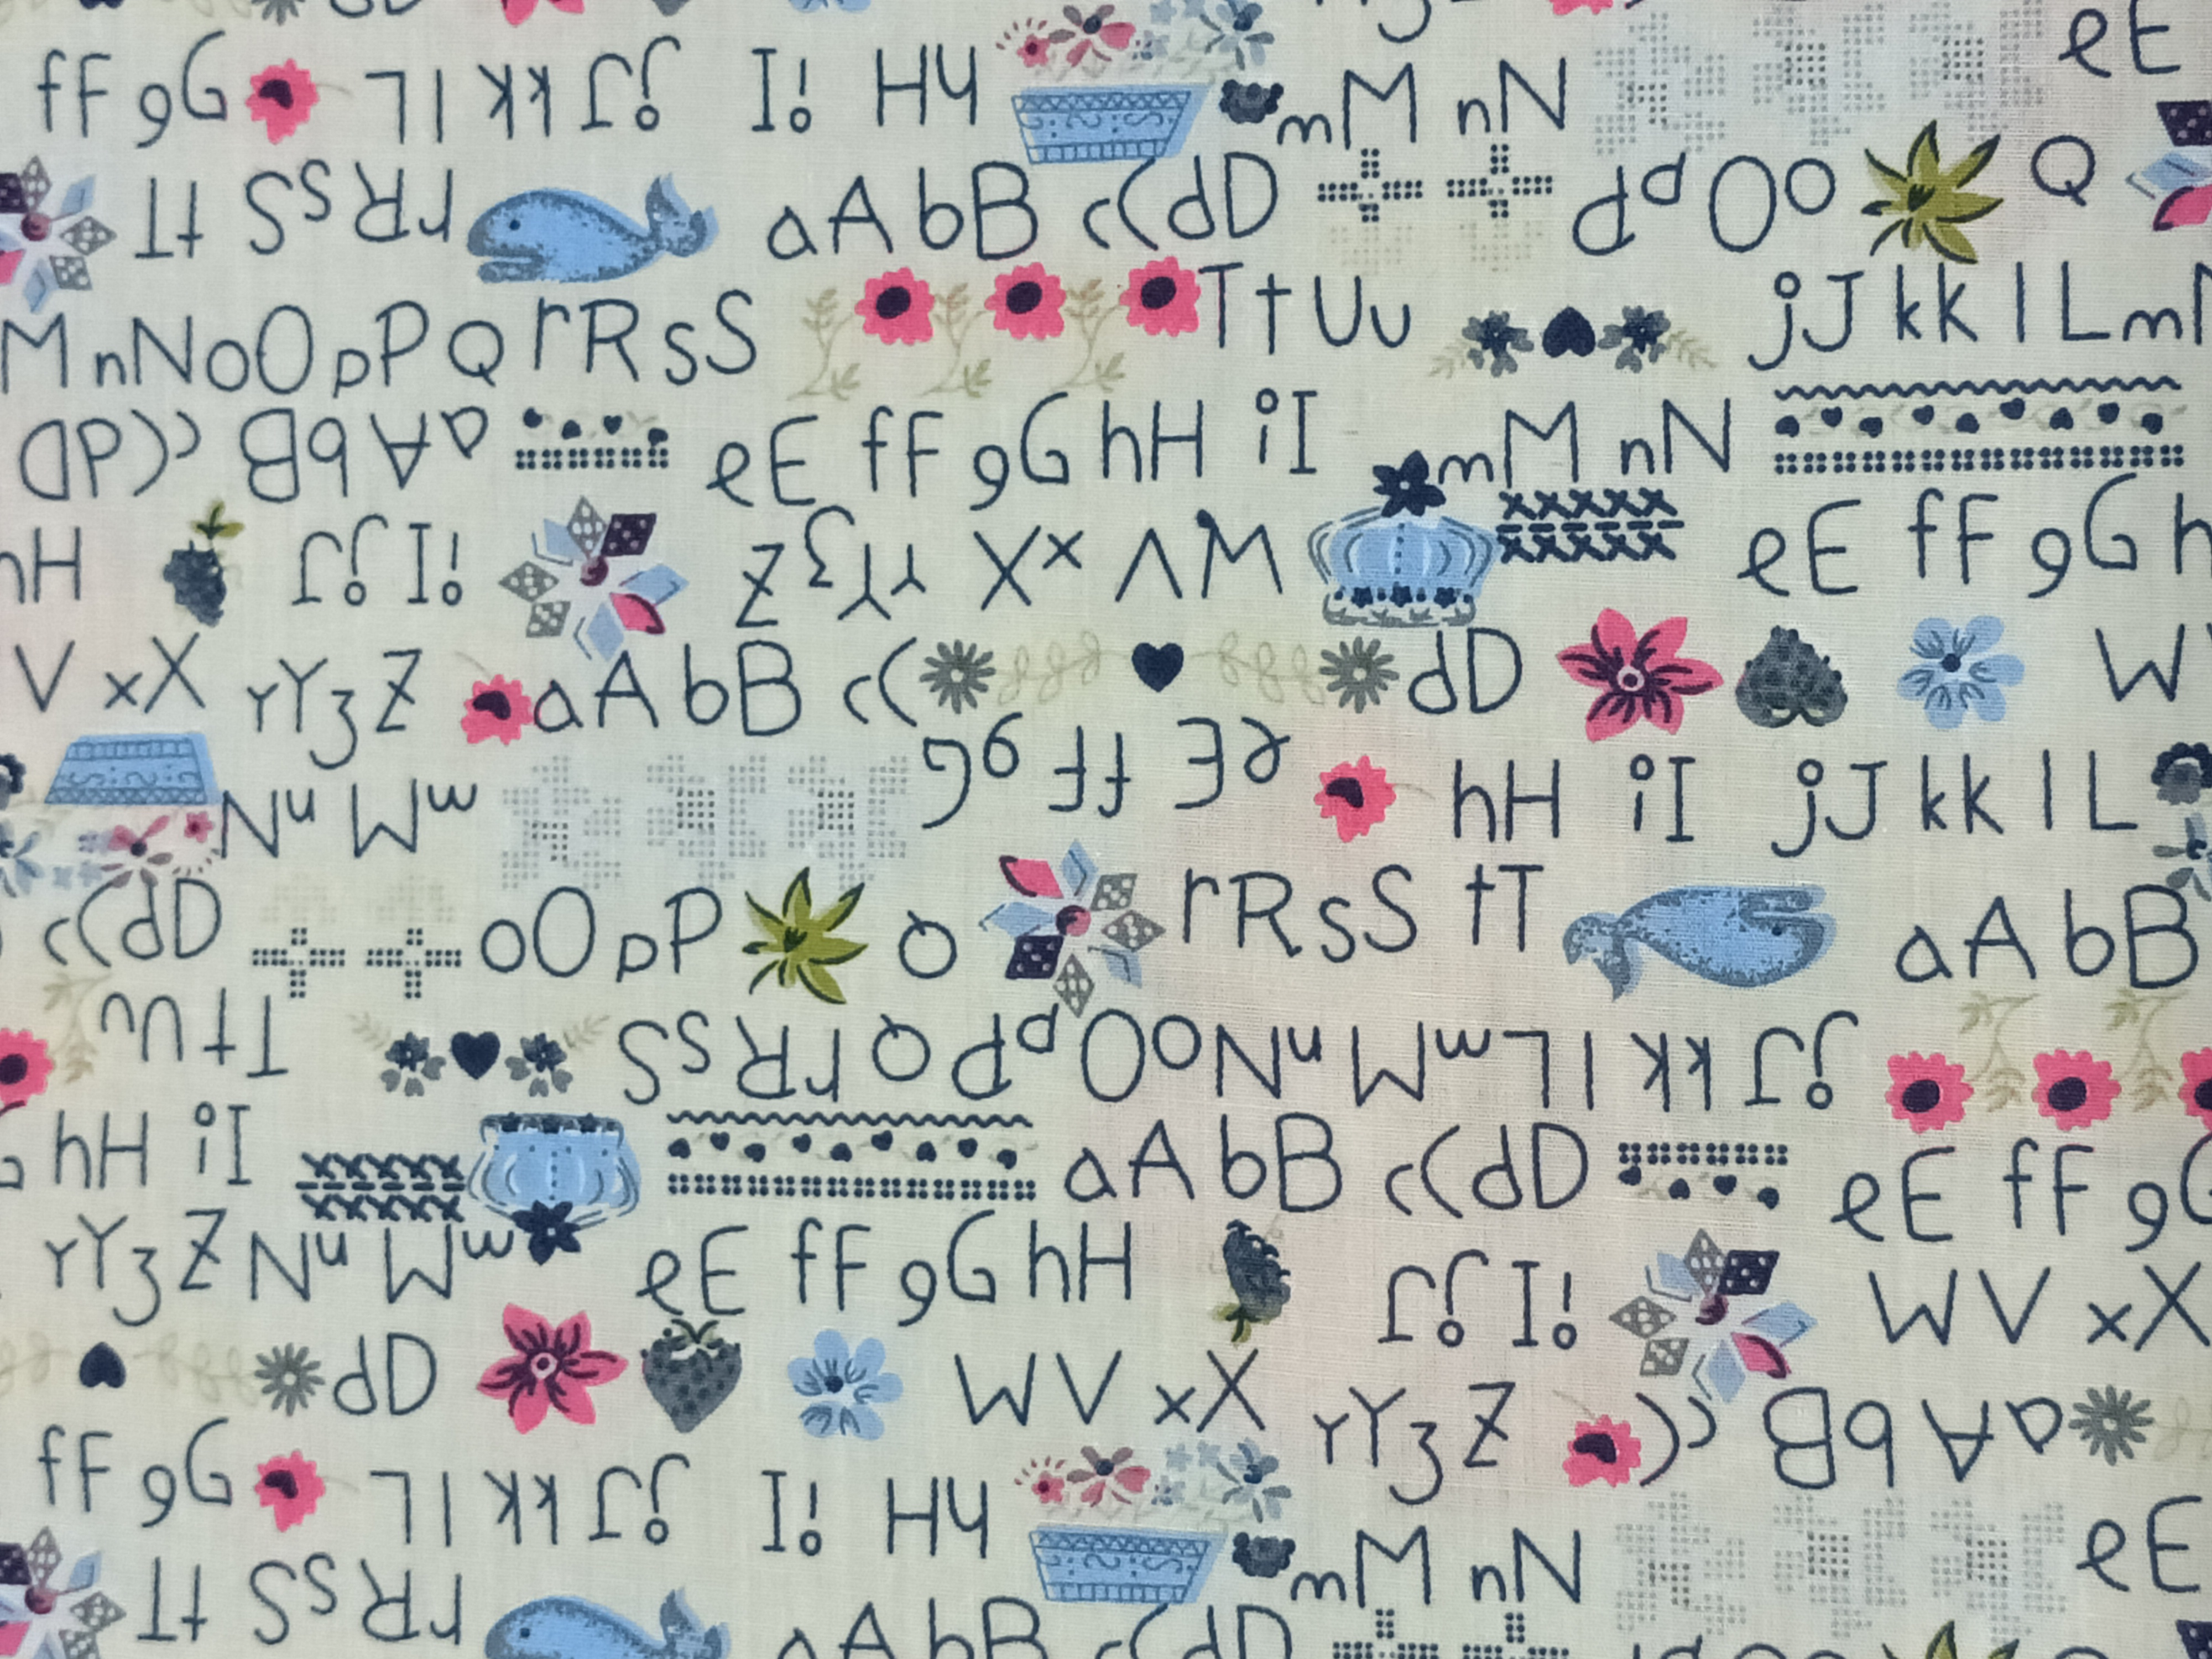 eE
fF gG hH iI jJ kk lL mM nN
rR sS tT aA bB cC dD pP Oo Q
M nN oO pP Q rR sS Tt Uu jJ kK lL m
aA bB cC dD eE fF gG hH iI mM nN
hH iI jJ W V xX yY zZ eE fF gG h
V xX yY zZ aA bB cC dD W
mM nN eE fF gG hH iI jJ kK lL
cC dD oO pP Q rR sS tT aA bB
Uu Tt jJ kK lL mM nN oO pP Q rR sS
G hH iI aA bB cC dD eE fF gG
yY zZ mM nN eE fF gG hH iI jJ W V xX
dD W V xX yY zZ aA bB cC
fF gG hH iI jJ kK lL mM nN eE
rR sS tT aA bB cC dD